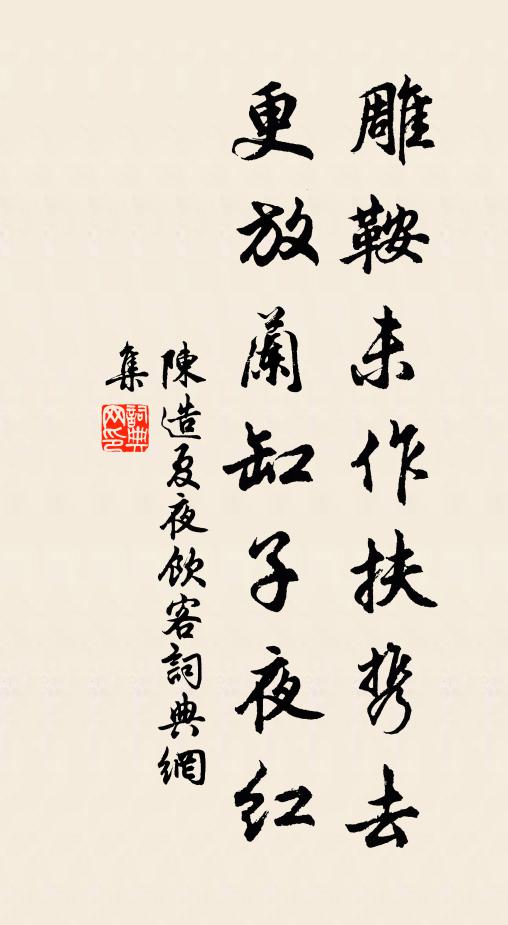 雕鞍未作扶携去
更放蘭缸子夜红
陳造夏夜飲客詞典網
集
詞典网印